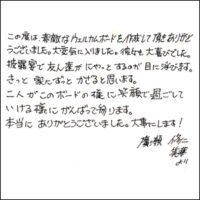 この度は、素敵なウェルカムボードを作成して頂きありがと
うございました。大変気に入りました。彼女も大喜びでした。
披露宴で友人達がにやっとするのが目に浮びます。
きっと 家にずっと かざると思います。
二人がこのボードの様に笑顔で過ごして
いける様にがんばって参ります。
本当に ありがとうございました。大事にします!
より